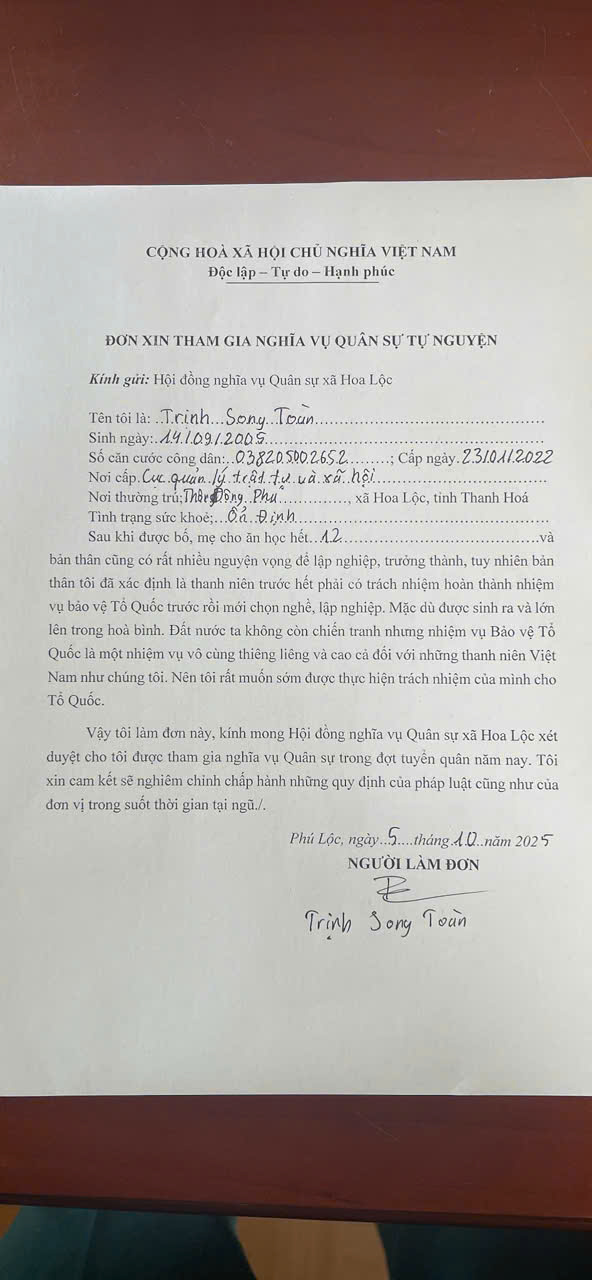 CỘNG HOÀ XÃ HỘI CHỦ NGHĨA VIỆT NAM
Độc lập – Tự do – Hạnh phúc
ĐƠN XIN THAM GIA NGHĨA VỤ QUÂN SỰ TỰ NGUYỆN
Kính gửi: Hội đồng nghĩa vụ Quân sự xã Hoa Lộc
Tên tôi là: Trịnh Song Toàn
Sinh ngày: 14/09/2005
Số căn cước công dân: 038205002652; Cấp ngày 23/01/2022
Nơi cấp Cục quản lý trật tự và xã hội
Nơi thường trú; Thôn Đông Phú, xã Hoa Lộc, tỉnh Thanh Hoá
Tình trạng sức khoẻ; Ổn Định
Sau khi được bố, mẹ cho ăn học hết 12 và
bản thân cũng có rất nhiều nguyện vọng để lập nghiệp, trưởng thành, tuy nhiên bản
thân tôi đã xác định là thanh niên trước hết phải có trách nhiệm hoàn thành nhiệm
vụ bảo vệ Tổ Quốc trước rồi mới chọn nghề, lập nghiệp. Mặc dù được sinh ra và lớn
lên trong hoà bình. Đất nước ta không còn chiến tranh nhưng nhiệm vụ Bảo vệ Tổ
Quốc là một nhiệm vụ vô cùng thiêng liêng và cao cả đối với những thanh niên Việt
Nam như chúng tôi. Nên tôi rất muốn sớm được thực hiện trách nhiệm của mình cho
Tổ Quốc.
Vậy tôi làm đơn này, kính mong Hội đồng nghĩa vụ Quân sự xã Hoa Lộc xét
duyệt cho tôi được tham gia nghĩa vụ Quân sự trong đợt tuyển quân năm nay. Tôi
xin cam kết sẽ nghiêm chỉnh chấp hành những quy định của pháp luật cũng như của
đơn vị trong suốt thời gian tại ngũ./.
Phú Lộc, ngày 5 tháng 10 năm 2025
NGƯỜI LÀM ĐƠN
Trịnh Song Toàn